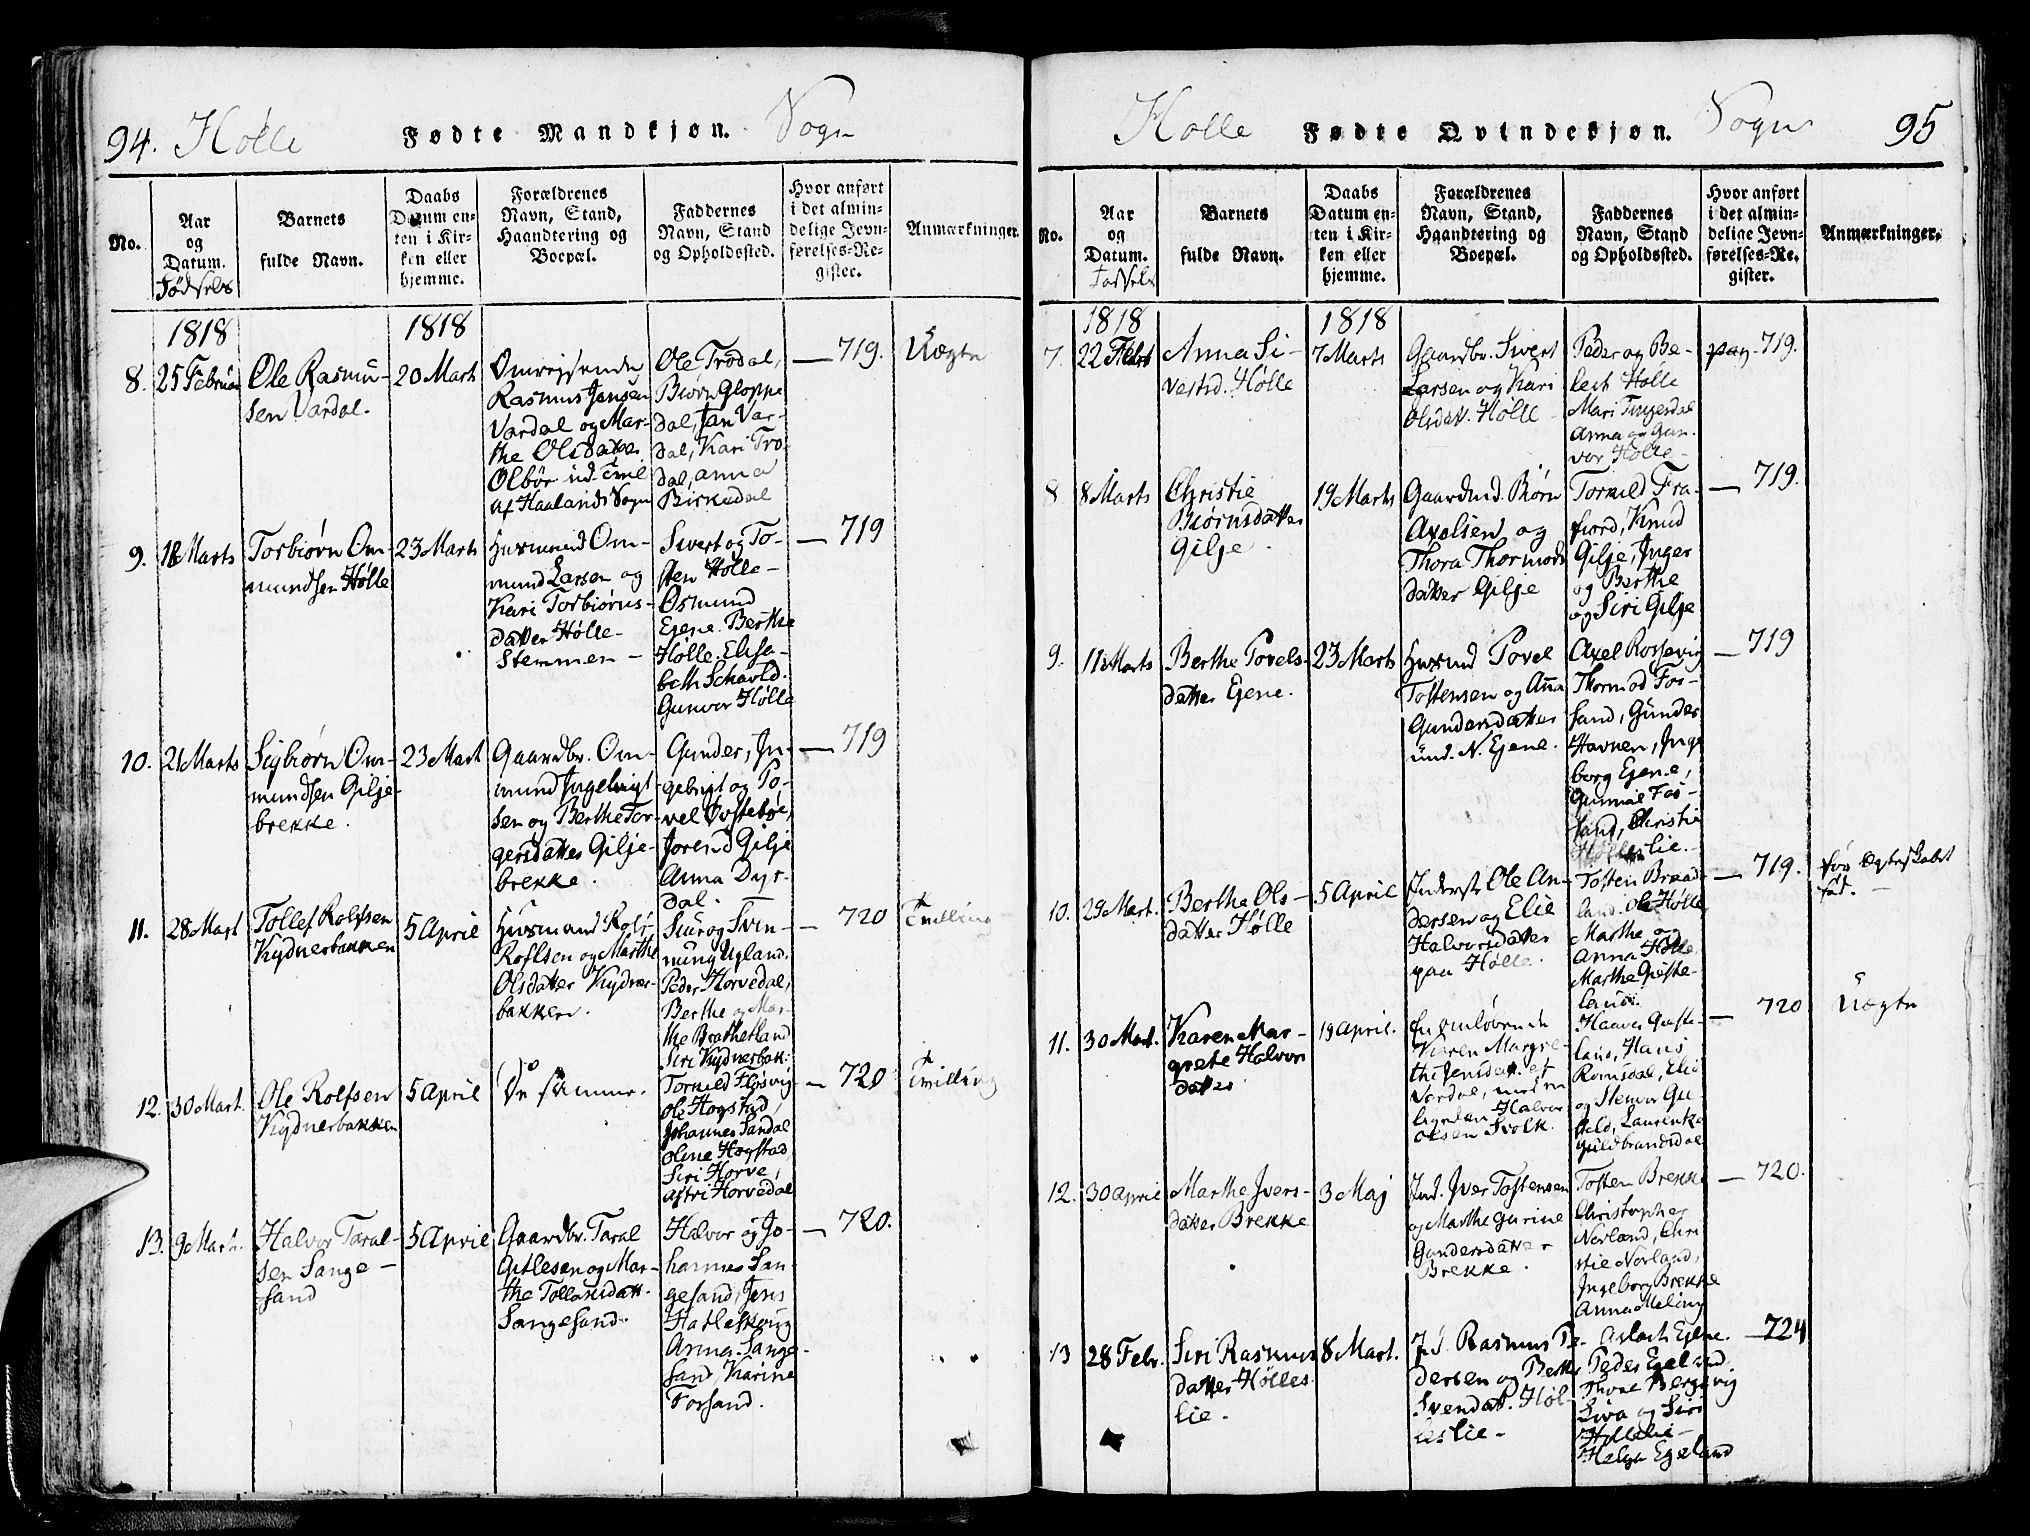 94. Hølle Fødte Mandkjøn. Sogn
No.
Aar
og
Datum.
Fødsels
Barnets
fulde Navn.
Daabs
Datum en-
ten i Kir-
ken eller
hjemme.
Forældrenes
Navn, Stand,
Haandtering og
Boepæl.
Faddernes
Navn, Stand
og Opholdssted.
Hvor anført
i det almin-
delige Jevn-
førelses-Re-
gister.
Anmærkninger.
1818
1818
8.
25 Februar
Ole Rasmu-
sen Vardal.
20 Marts
Omrejsende
Rasmus Jensen
Vardal og Mar-
the Olsdatter
Ølbør
af Haalands Sogn
Ole Trødal,
Biørn Gloppe
dal, Jan Var-
dal, Kari Trø-
dal, Anna
Birkedal
— 719.
Uægte
9.
Marts
Torbiørn Om-
mundsen Hølle
23 Marts
Huusmand Om-
mund Larsen og
Kari Torbiørns-
datter Hølle-
Stemmen —
Sivert og To-
sten Hølle-
Osmund
Ejene. Berthe
Hølle. Elisa-
beth Schavld.
Gunvor Hølle
— 719
10.
21 Marts
Sigbiørn Om-
mundsen Gilje-
brekke.
23 Mart
Gaardbr. Om-
mund Ingebrigt-
sen og Berthe Tor-
gersdatter Gilje-
brekke.
Gunder, In-
gebrigt og To-
vel Østebøe,
Jorend Gilje
Anna Dyr-
dal.
— 719
11.
28 Mart
Tollef Rolfsen
Kydnerbakken
5 April
Huusmand Rolf
Rolfsen og Marthe
Olsdatter Kydner-
bakken.
Siur og Svin-
nung Ugland,
Peder Horvedal,
Berthe og Mar-
the Bratheland
Siri Kydnerbak:
— 720
Tvilling
12.
30 Mart.
Ole Rolfsen
Kydnerbakken
5 April
De samme.
Torkild Fløsvig
Ole Hogstad,
Johannes Sandal
Olene Hogstad,
Siri Horve,
Astri Horvedal
— 720
Tvilling
13.
9 Mart.
Halvor Taral-
sen Sange-
sand
5 April
Gaardbr. Taral
Atlesen og Mar-
the Tollaksdatt.
Sangesand.
Halvor og Jo-
hannes San-
gesand, Jens
Hatleskoug
Anna Sange-
sand, Karine
Forsand.
— 720.
Hølle Fødte Qvindekjøn. Sogn 95
No.
Aar
og
Datum.
Fødsels
Barnets
fulde Navn.
Daabs
Datum en-
ten i Kir-
ken eller
hjemme.
Forældrenes
Navn, Stand,
Haandtering og
Boepæl.
Faddernes
Navn, Stand
og Opholdssted.
Hvor anført
i det almin-
delige Jevn-
førelses-Re-
gister.
Anmærkninger.
1818
1818
7.
22 Febr
Anna Si-
vertsd. Hølle
7 Marts
Gaardbr. Sivert
Larsen og Kari
Olsdatt. Hølle
Peder og Be-
lest Hølle
Mari Tingesdal
Anna og Gun-
vor Hølle-
pag. 719.
8.
8 Marts
Christie
Biørnsdatter
Gilje.
19 Marts
Gaardmd. Biørn
Axelsen og
Thora Thormods
datter Gilje
Torkild Fra-
fiord, Knud
Gilje, Inger
og Berthe
og Siri Gilje
— 719.
9.
11 Marts
Berthe Povels-
datter Ejene.
23 Marts
Huusmd Povel
Tostensen og Ana
Gundersdatter
und. N. Ejene.
Axel Rossevig
Thormod Fos-
sand, Gunder
Havnen, Inge
borg Ejene,
Gunnil Fos-
sand, Christie
Hølleslie.-
— 719
10.
29 Mart.
Berthe Ols-
datter Hølle
5 April
Inderste Ole An-
dersen og Elie
Halvorsdatter
paa Hølle.
Tosten Braad-
land. Ole Hølle
Marthe og
Anna Hølle,
Marthe Gieste-
land.
— 719.
før Ægteskabet
fød. —
11.
30 Mart.
Karen Mar-
grete Halvors
datter
19 April.
En omløbende
Karen Margre-
the Jensdatt. af
Vardal, med en
Halvor
Olsen Svolk.
Haaver Gieste-
land, Hans
Romsdal, Elie
og Stenvor Gu-
, Laurentze
Guldbrandsdal
— 720
Uægte
12.
30 April
Marthe Ivers-
datter Brekke
3 Maj
Ind. Iver Tostensen
og Marthe Gurine
Gundersdatter
Brekke.
Tosten Brekke
Christopher
Norland, Chri
stie Norland,
Ingeborg Brekke
Anna Meling
— 720.
13
28 Febr.
Siri Rasmus
datter Hølles-
lie.
8 Mart.
Rasmus Pe-
dersen og Berthe
Svendsdatt. Høl-
leslie-
Aslach Ejene.
Peder Egeland
Thore Bergevig
Siva og Siri
Høllelie-
Helga Egeland
— 724